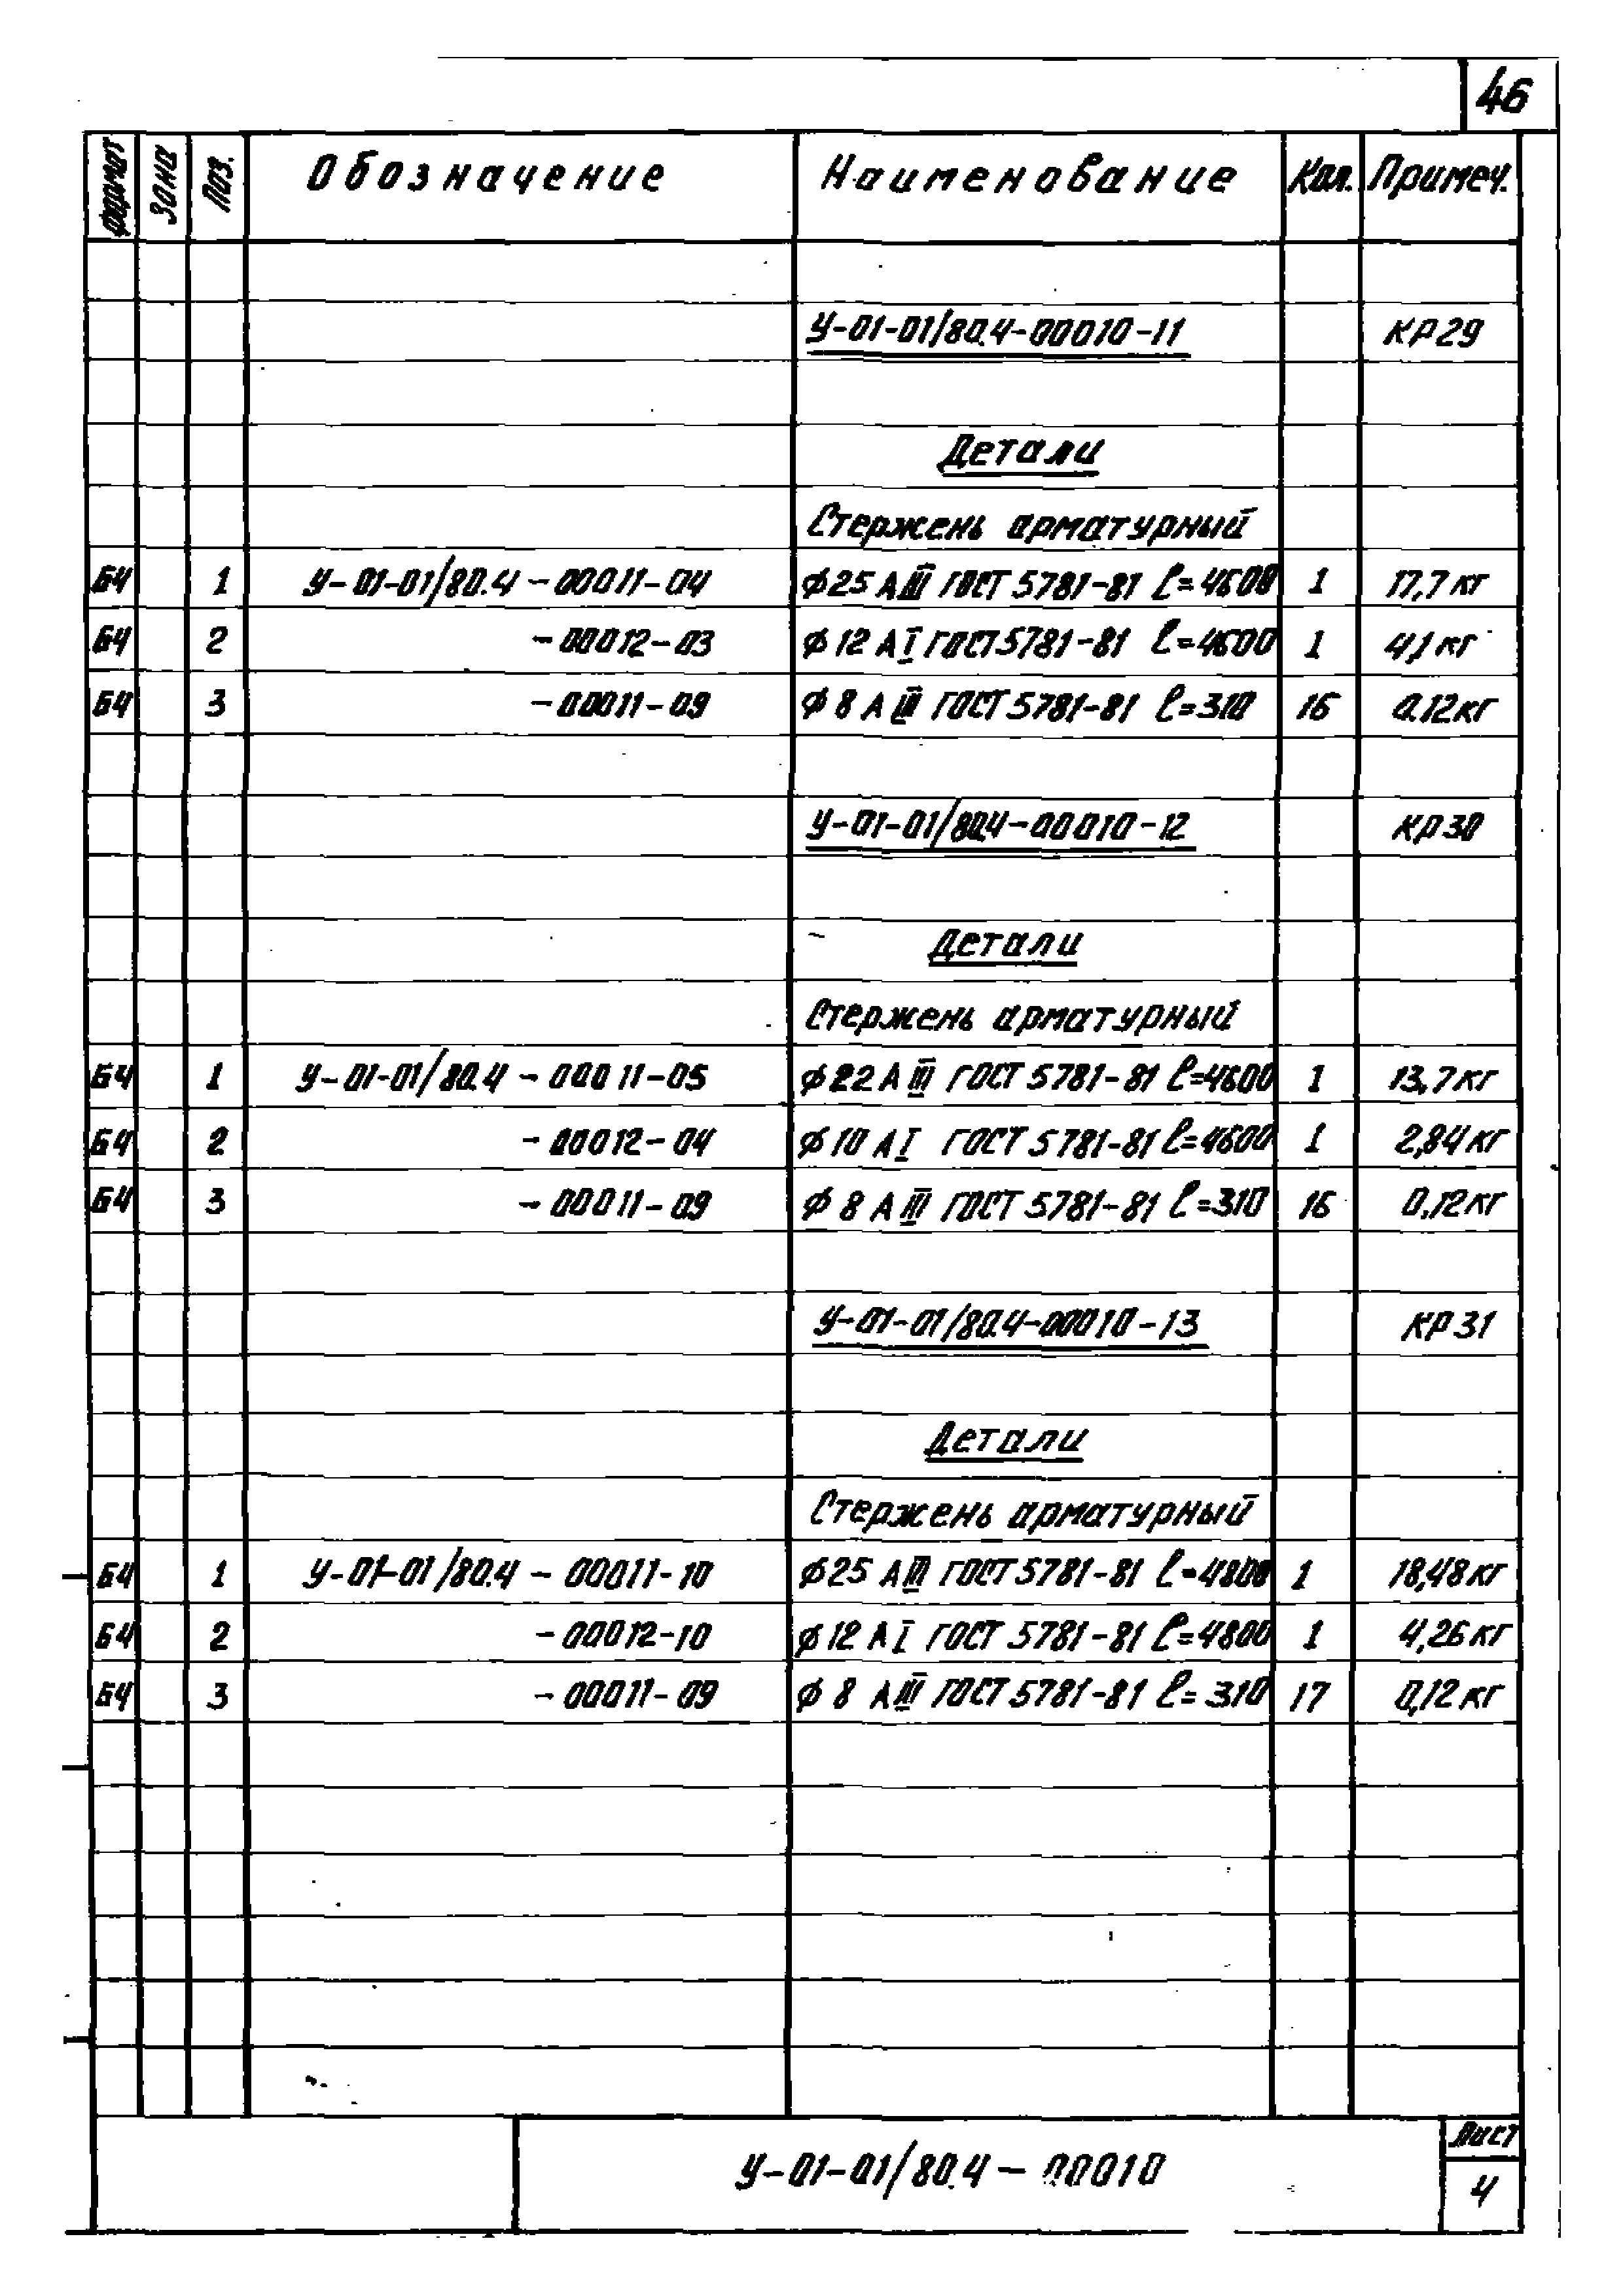 46
Формат Зона Поз. Обозначение Наименование Кол. Примеч.
У-01-01/80.4-00010-11 КР29
Детали
Стержень арматурный
БЧ 1 У-01-01/80.4-00011-04 Ø25 АIII ГОСТ 5781-81 ℓ=4600 1 17,7 кг
БЧ 2 -00012-03 Ø12 АI ГОСТ 5781-81 ℓ=4600 1 4,1 кг
БЧ 3 -00011-09 Ø8 АIII ГОСТ 5781-81 ℓ=310 16 0.12 кг
У-01-01/80.4-00010-12 КР30
Детали
Стержень арматурный
БЧ 1 У-01-01/80.4-00011-05 Ø22 АIII ГОСТ 5781-81 ℓ=4600 1 13,7 кг
БЧ 2 -00012-04 Ø10 АI ГОСТ 5781-81 ℓ=4600 1 2,84 кг
БЧ 3 -00011-09 Ø8 АIII ГОСТ 5781-81 ℓ=310 16 0,12 кг
У-01-01/80.4-00010-13 КР31
Детали
Стержень арматурный
БЧ 1 У-01-01/80.4-00011-10 Ø25 АIII ГОСТ 5781-81 ℓ=4800 1 18,48 кг
БЧ 2 -00012-10 Ø12 АI ГОСТ 5781-81 ℓ=4800 1 4,26 кг
БЧ 3 -00011-09 Ø8 АIII ГОСТ 5781-81 ℓ=310 17 0,12 кг
Лист
У-01-01/80.4-00010 4